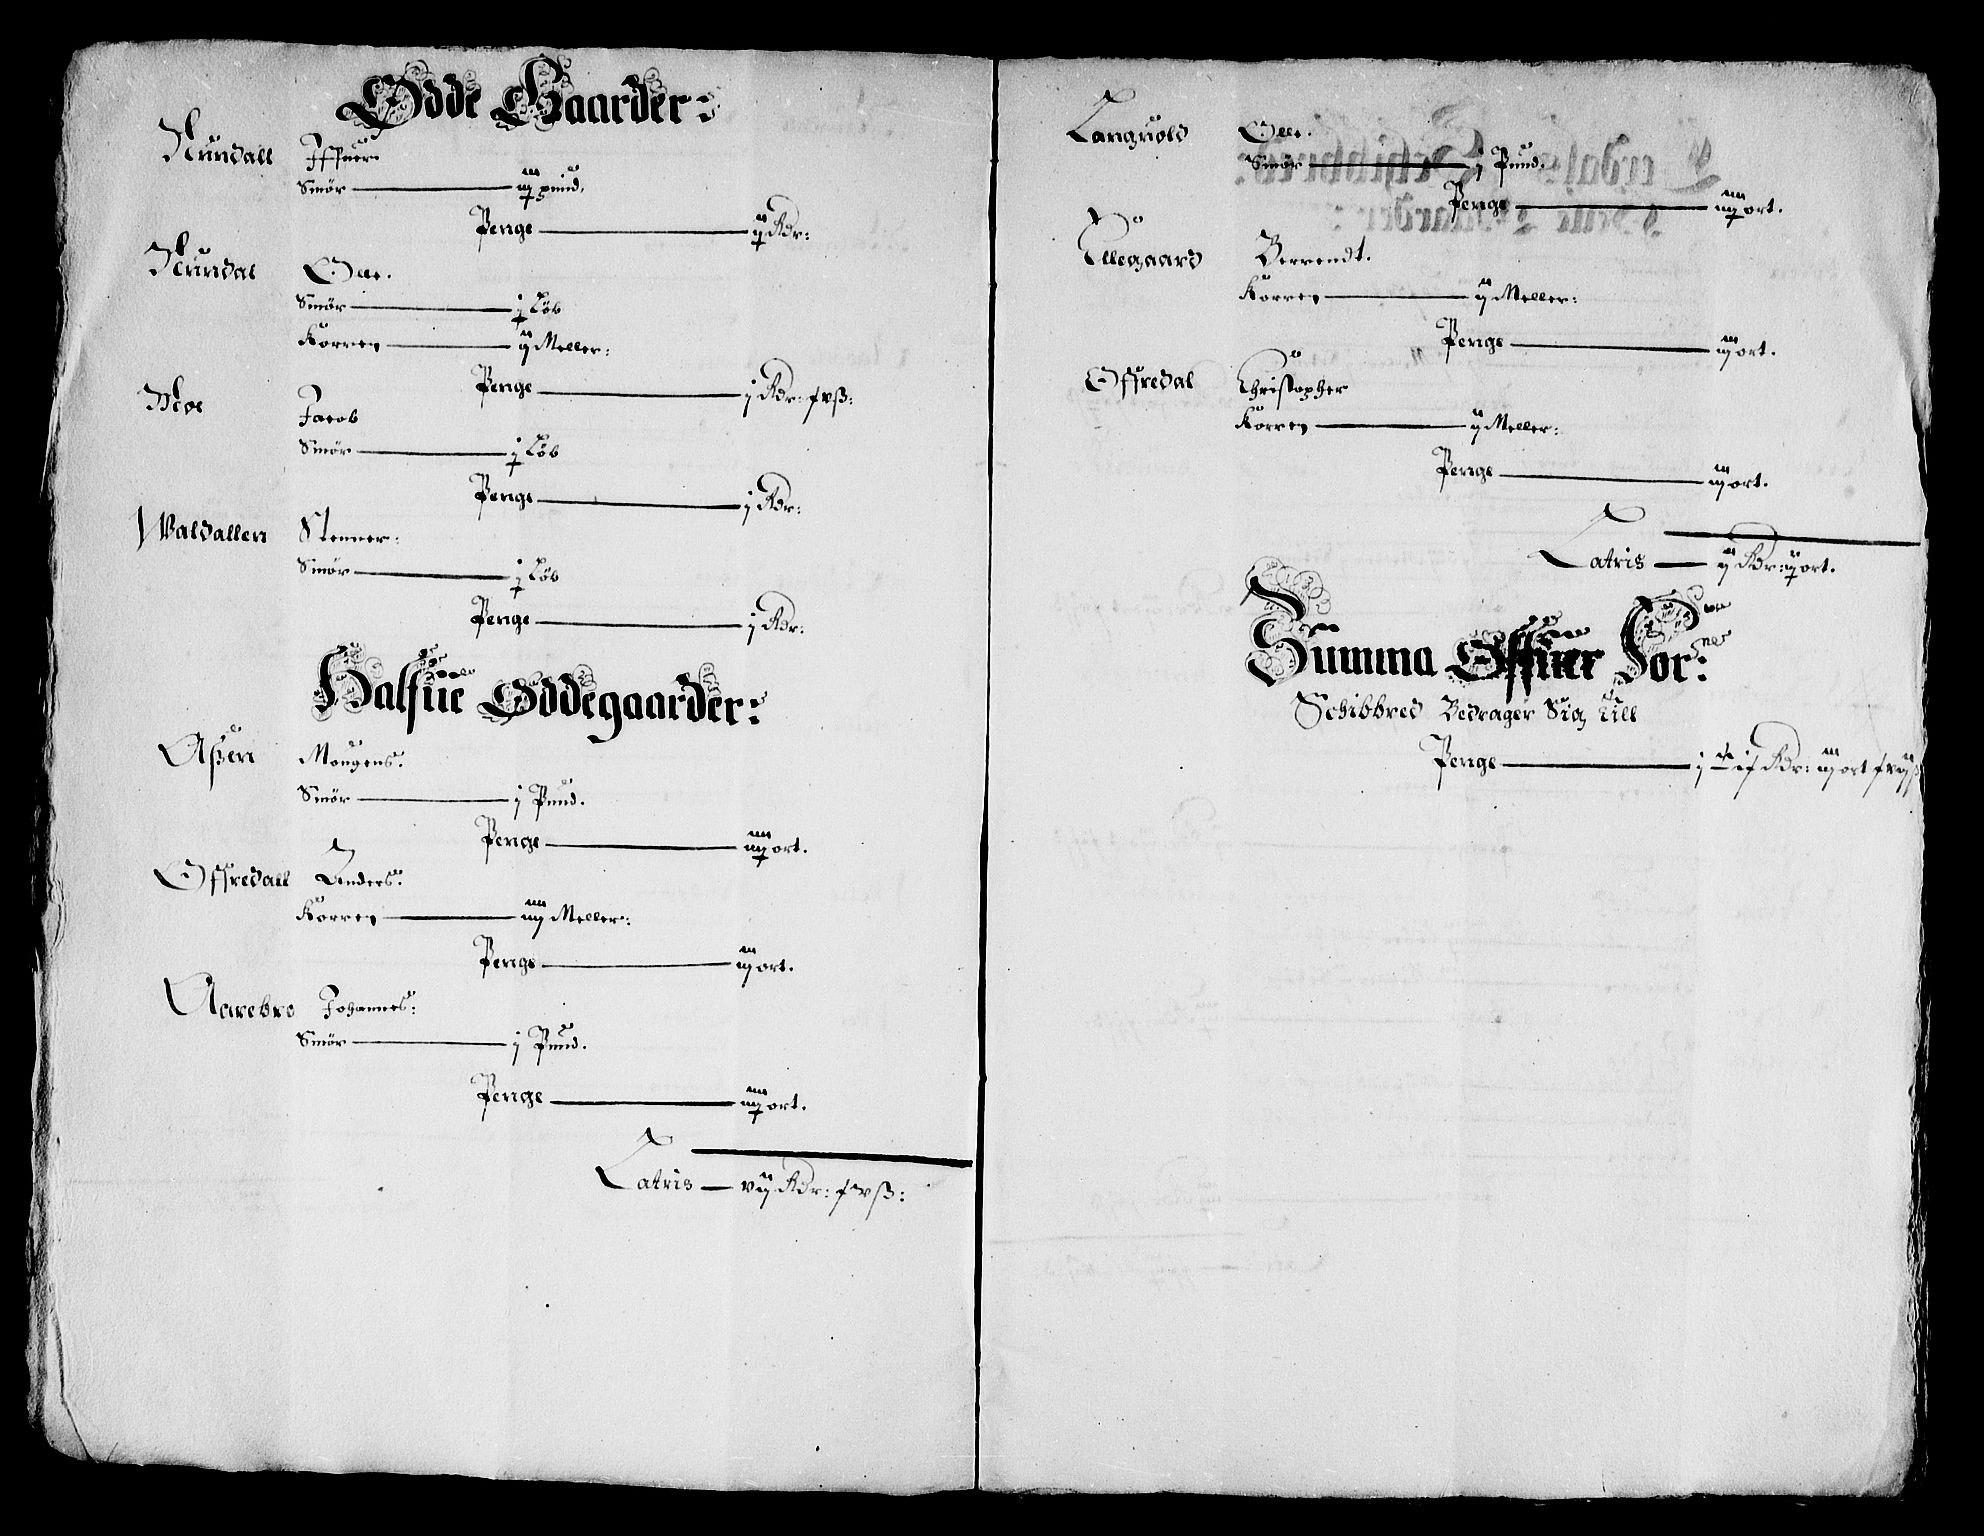 Ødde Gaarder:
Nundall Iffuer
Smør — iij pund.
Penge — ij Rdr:
Nundal Olle.
Smør — j Løb
Korren — ij Meller:
Penge — j Rdr: xvß:
Moe Jacob
Smør — j Løb
Penge — j Rdr:
Waldallen Stenner:
Smør — j Løb
Penge — j Rdr:
Halfue Øddegaarder:
Aßen Mougens.
Smør — j Pund.
Penge — iiij ort.
Offredall Anders.
Korren — iiij Meller:
Penge — iij ort.
Aarebro Johannes:
Smør — j Pund.
Penge — iiij ort.
Latris — vij Rdr: xvß:
Languold Olle.
Smør — j Pund.
Penge — iiij ort.
Ellegaard Berrendt.
Korren — ij Meller:
Penge — iij ort.
Offredal Christopher
Korren — ij Meller:
Penge — iij ort.
Latris — ij Rdr: ij ort.
Summa Offuer
Schibbred Bedrager Sig till
Penge — Rdr: iij ort xvijß